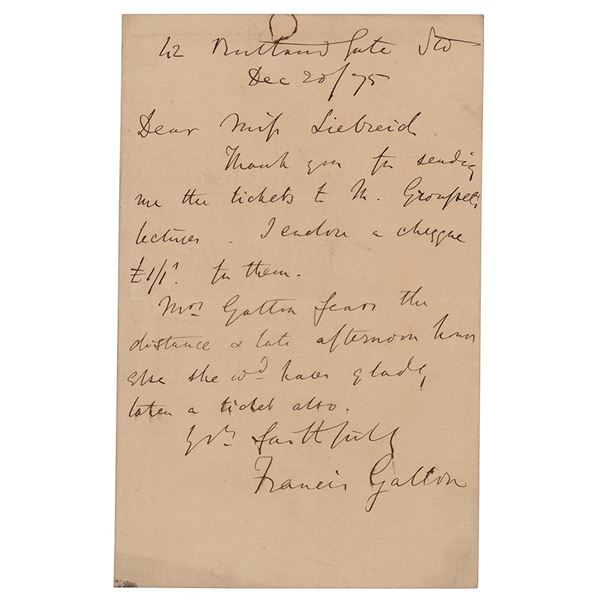 42 Rutland Gate SW
Dec 20/75
Dear Miss Liebreich
Thank you for sending
me the tickets to M. Grousset's
lectures. I enclose a cheque
£1/1s. for them.
Mrs Galton fears the
distance & late afternoon hour
else she wd have gladly
taken a ticket also.
Yrs faithfully
Francis Galton